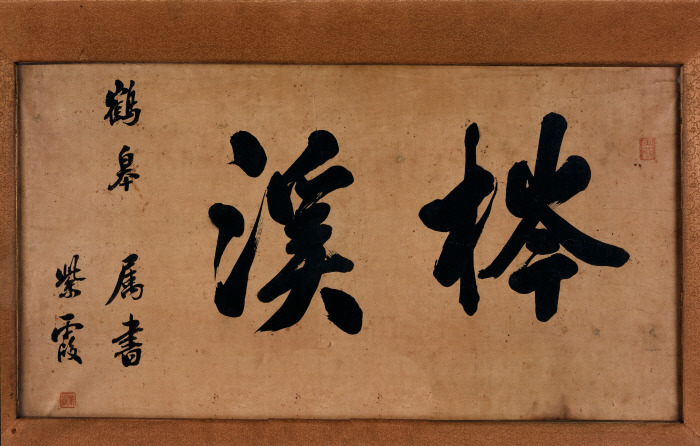 梣溪
鶴皋 属書
紫霞